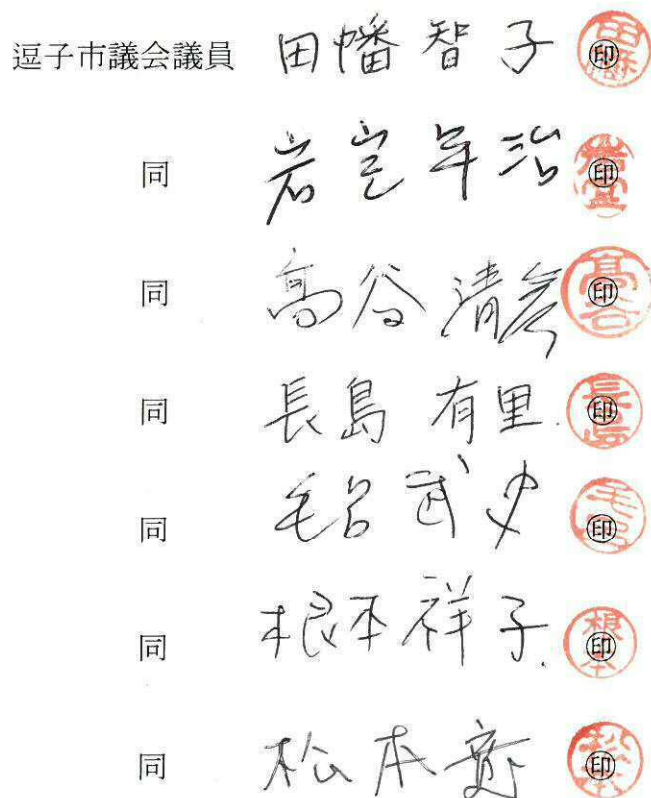 逗子市議会議員 田幡智子 印
同 岩室年治 印
同 髙谷清彦 印
同 長島有里 印
同 毛呂武史 印
同 根本祥子 印
同 松本寛 印